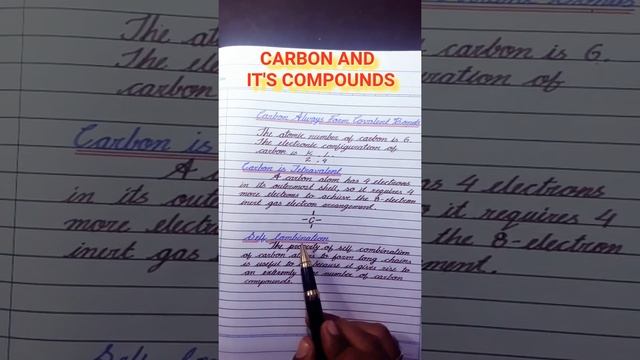 CARBON AND
IT'S COMPOUNDS
Carbon Always Form Covalent Bonds
The atomic number of carbon is 6.
The electronic configuration of
carbon is K L
2 , 4
Carbon is Tetravalent
A carbon atom has 4 electrons
in its outermost shell, so it requires 4
more electrons to achieve the 8-electron
inert gas electron arrangement.
-C-
Self Combination
The property of self combination
of carbon atoms to form long chains
is useful to because it gives rise to
an extremely number of carbon
compounds.